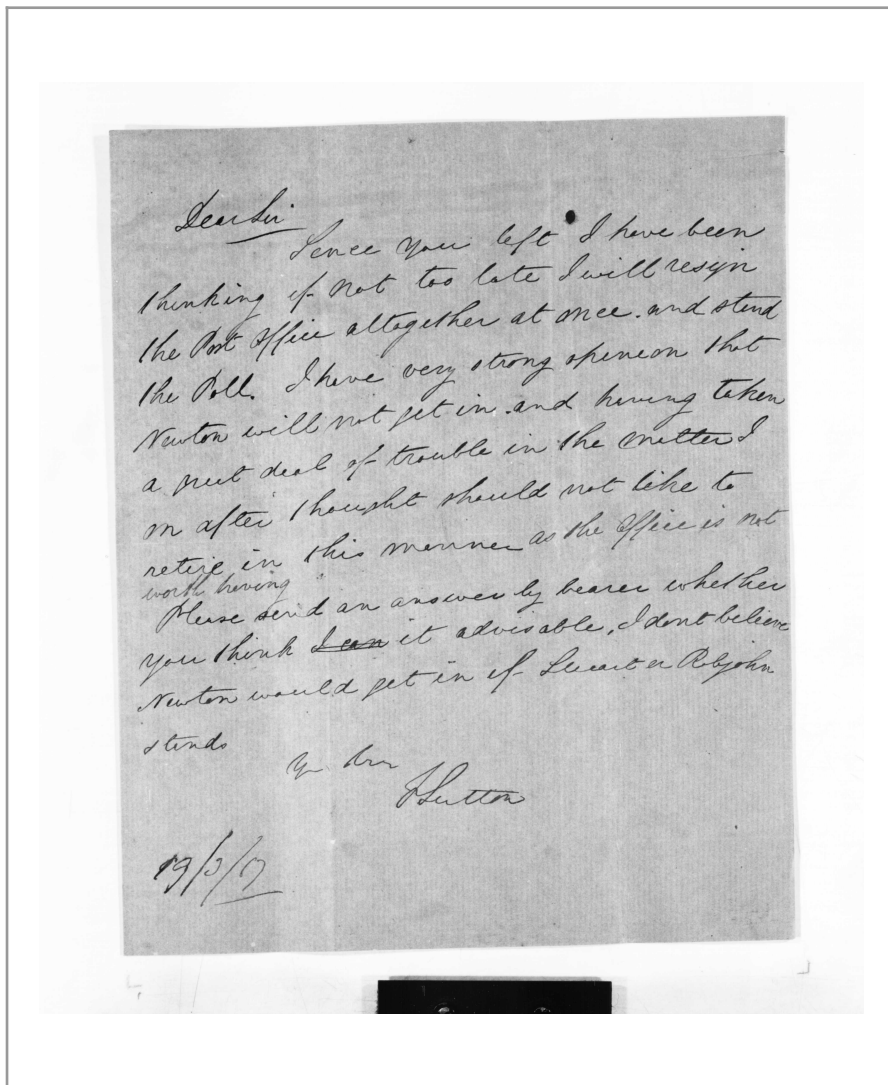 Dear Sir
Sence you left I have been
thinking if not too late I will resign
the Post Office altogether at once. and stand
the Poll. I have very strong openeon that
Newton will not get in. and having taken
a great deal of trouble in the matter I
on after thought should not like to
retire in this manner as the Office is not
worth having
Please send an answer by bearer whether
you think I can it advisable, I dont believe
Newton would get in if or Robjohn
stands
Sutton